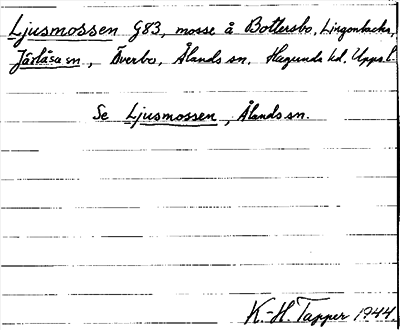 Ljusmossen G83, mosse å Bottersbo, Lingonbacka,
Järlåsa sn, Överbo, Ålands sn, Hagunda hd, Upps. l.
Se Ljusmossen, Ålands sn.
K.-H. Tapper 1944.